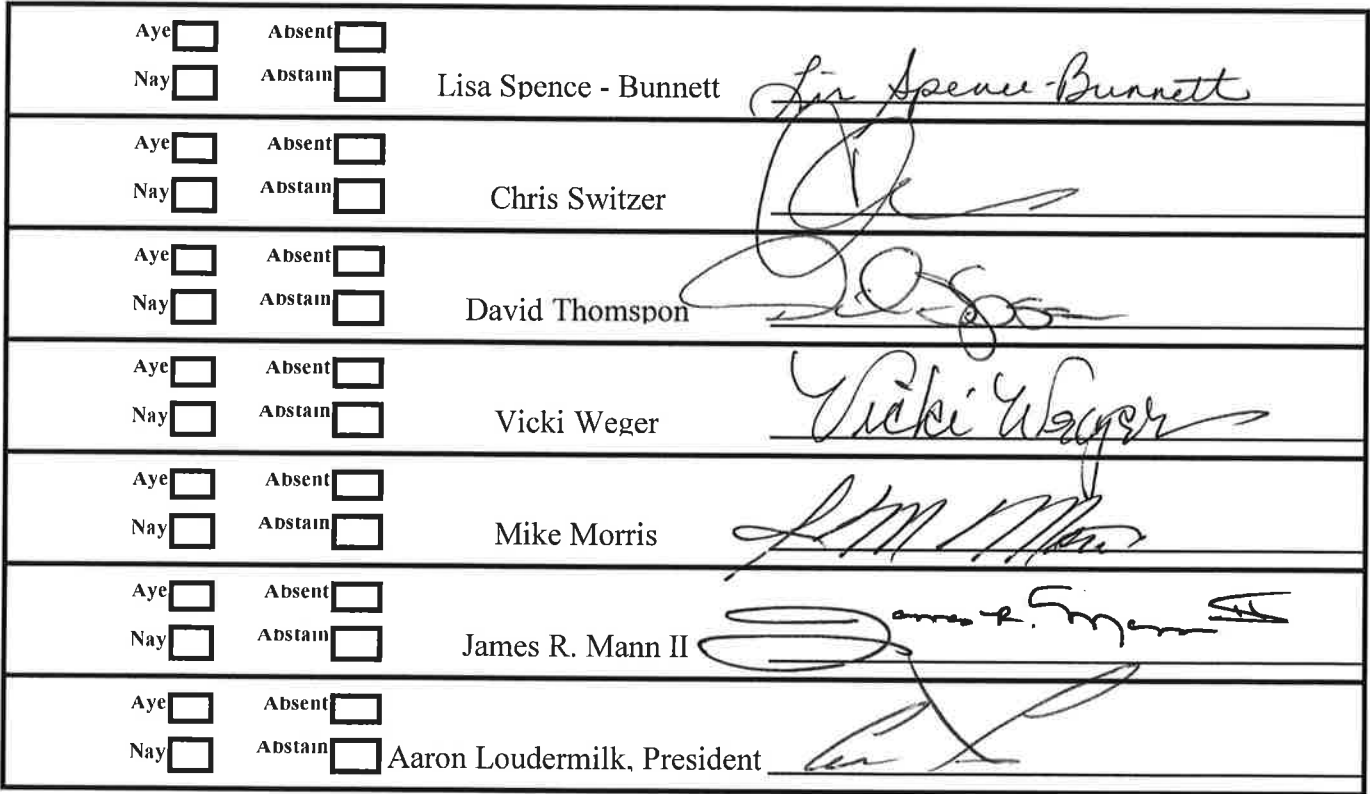 Aye Absent
Nay Abstain Lisa Spence - Bunnett Spence-Bunnett
Aye Absent
Nay Abstain Chris Switzer
Aye Absent
Nay Abstain David Thomspon
Aye Absent
Nay Abstain Vicki Weger Vicki Weger
Aye Absent
Nay Abstain Mike Morris
Aye Absent
Nay Abstain James R. Mann II James R. Mann II
Aye Absent
Nay Abstain Aaron Loudermilk, President